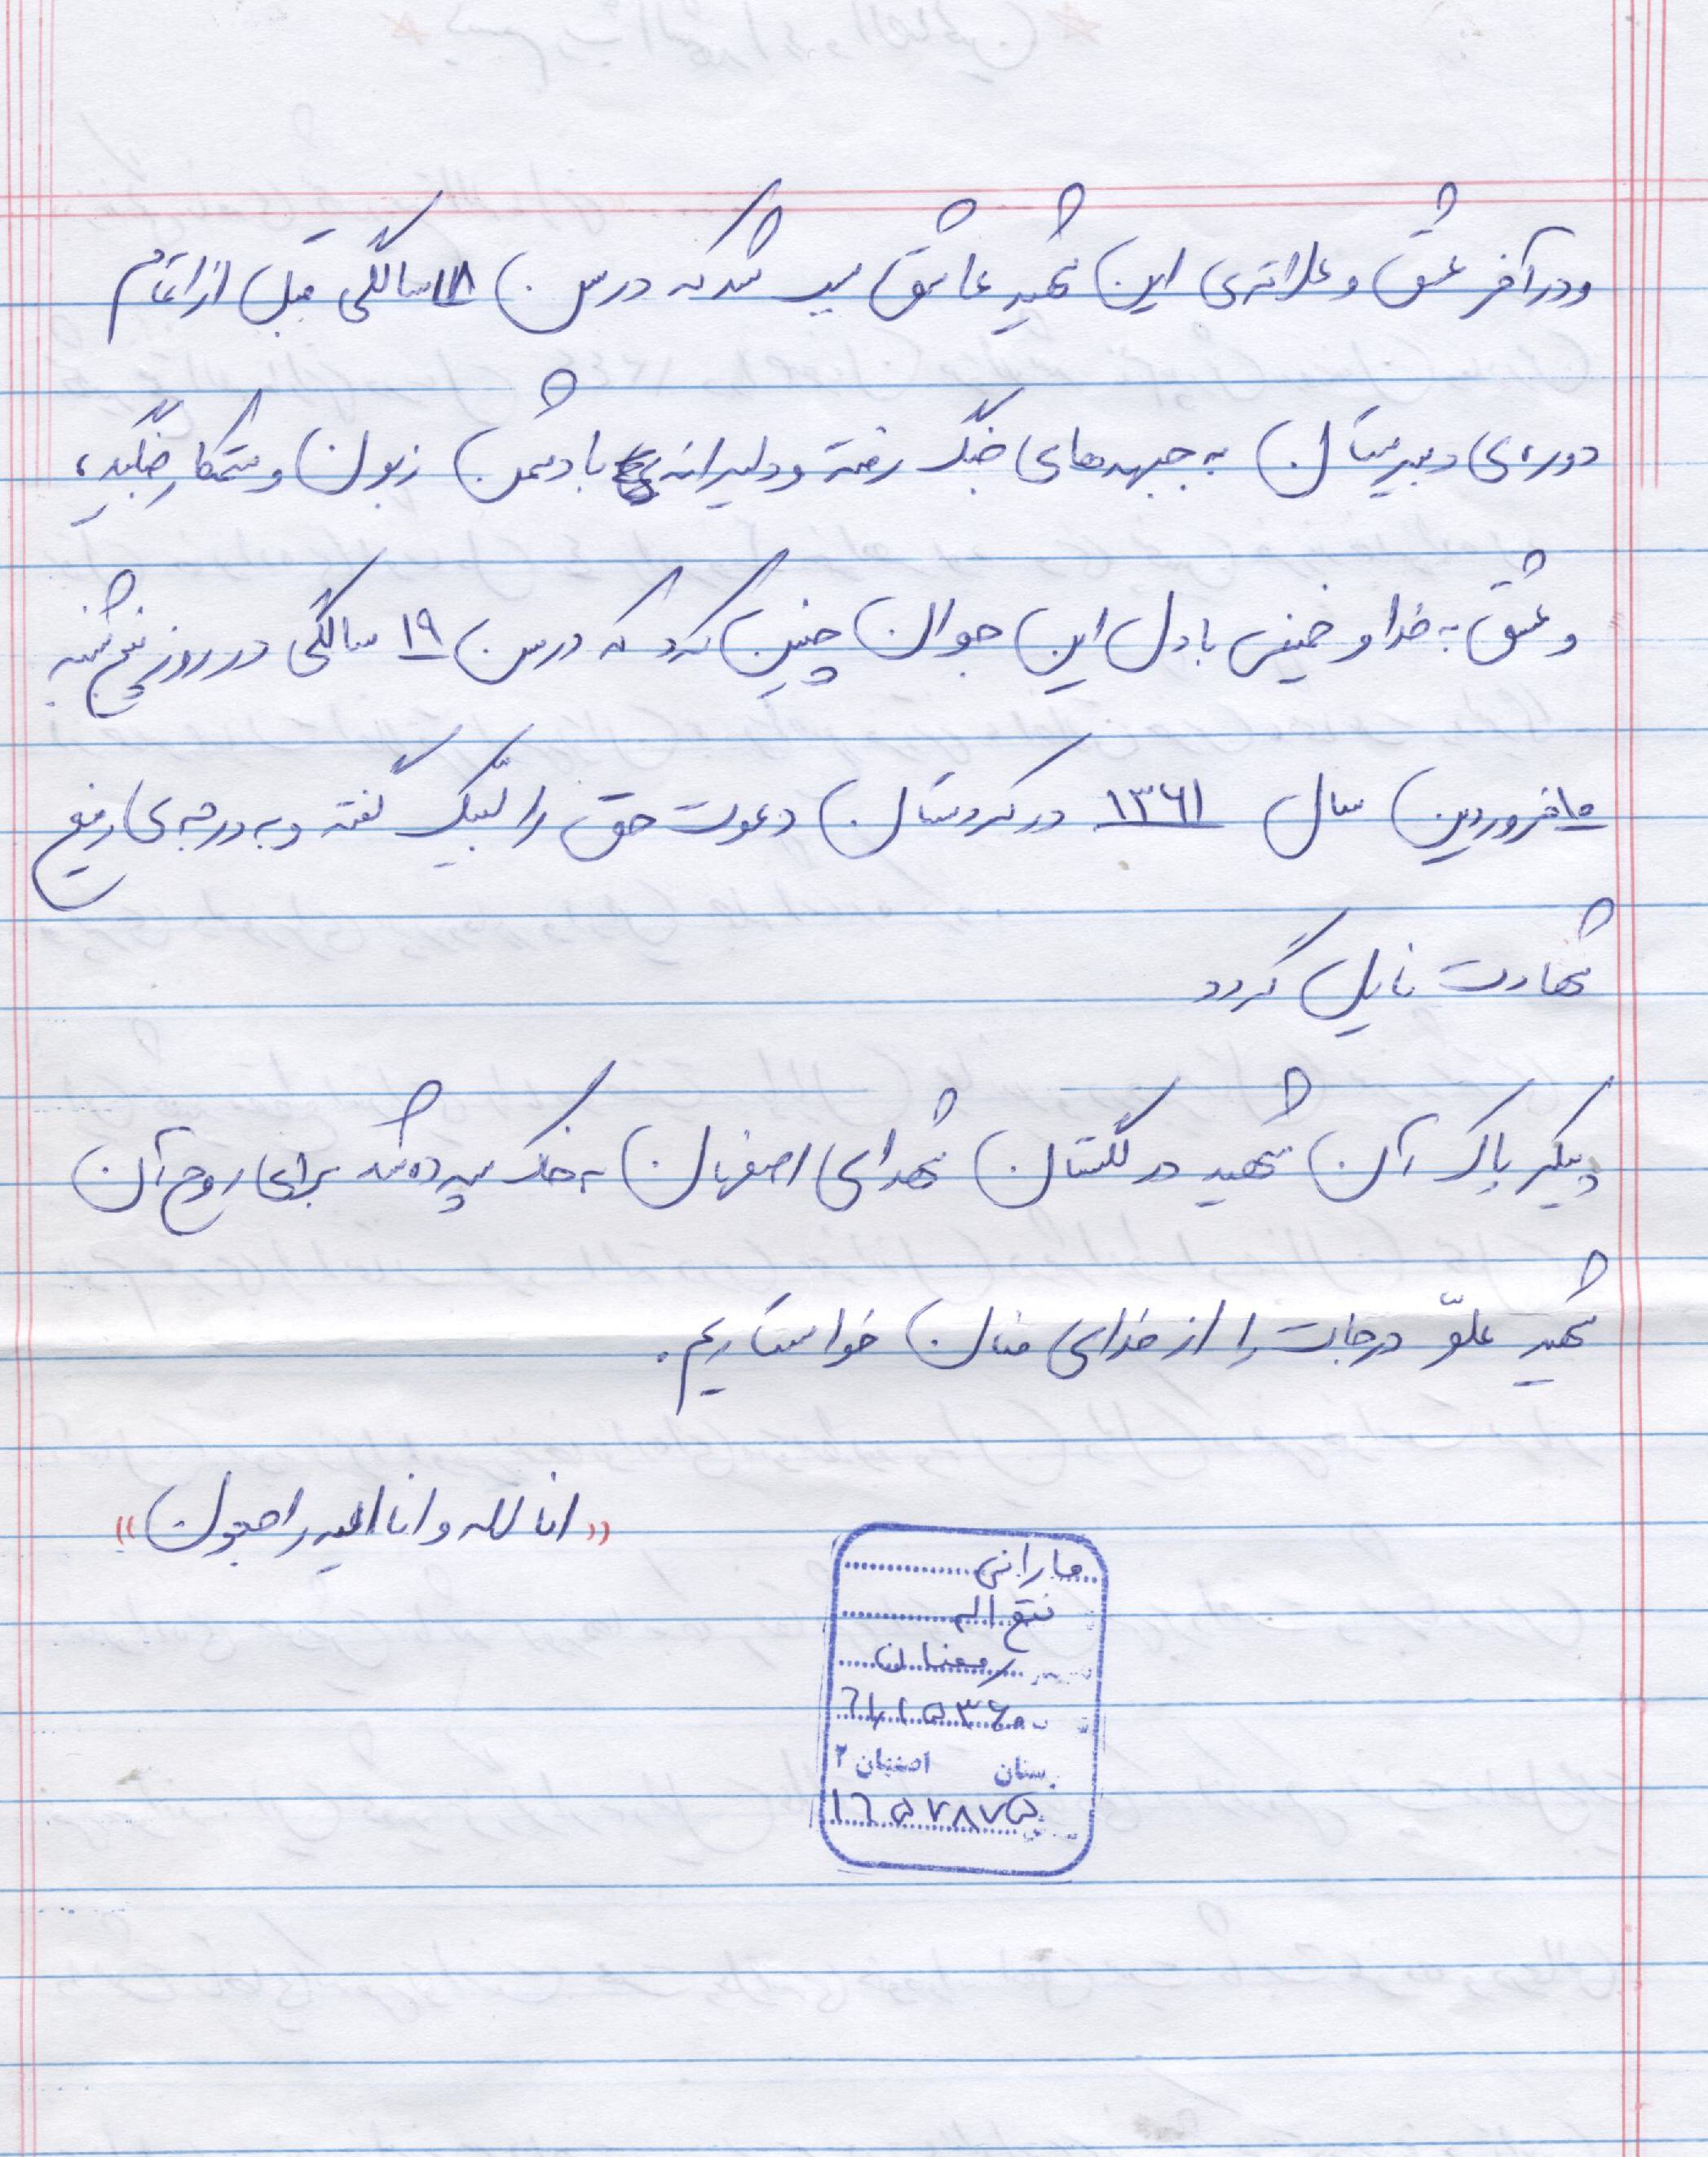 و در آخر عشق و علاقه‌ی این شهید عاشق سبب شد که در سن ۱۸ سالگی قبل از اتمام
دوره‌ی دبیرستان به جبهه‌های جنگ رفته و دلیرانه با دشمن زبون و ستمکار جنگید،
و عشق به خدا و خمینی با دل این جوان چنین کرد که در سن ۱۹ سالگی در روز پنج شنبه
فروردین سال ۱۳۶۱ در کردستان دعوت حق را لبیک گفته و به درجه‌ی رفیع
شهادت نایل گردد
پیکر پاک آن شهید در گلستان شهدای اصفهان به خاک سپرده شد برای روح آن
شهید علوّ درجات را از خدای منان خواستاریم.
«انا لله و انا الیه راجعون»
مارانی
فتح اله
رمضان
۶۱۱۵۳۶۰
ستان اصفهان ۲
۱۶۵۷۸۷۵